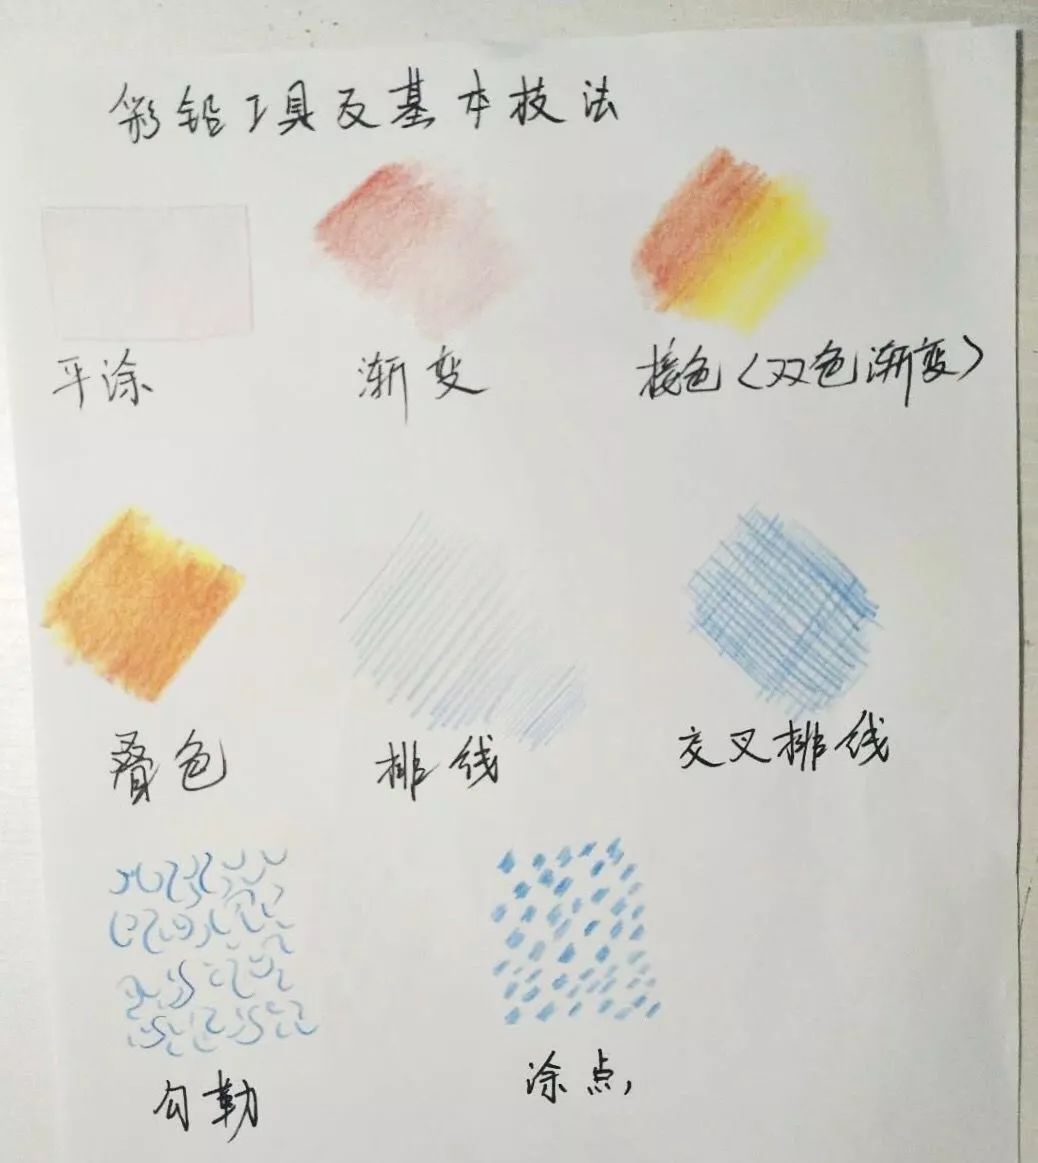 彩铅工具及基本技法
平涂
渐变
接色(双色渐变)
叠色
排线
交叉排线
勾勒
涂点,